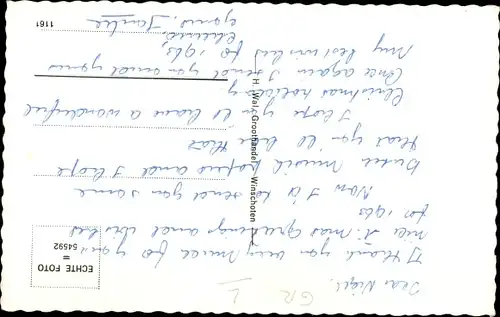 Dear Nigel,
I thank you very much for your
nice X-mas greetings and wishes
for 1965
Now I'd to send you some
Dutch musik papers and I hope
that you'll like that
I hope you'll have a wonderful
Christmas holiday
Once again I send you and yours
my best wishes for 1965,
yours,
ECHTE FOTO
=
54592
H. v.d. Wal - Groothandel - Winschoten
1161
GR
L